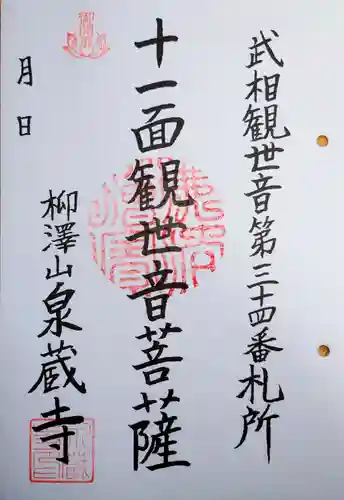 武相観世音第三十四番札所
十一面観世音菩薩
月日
柳澤山泉蔵寺